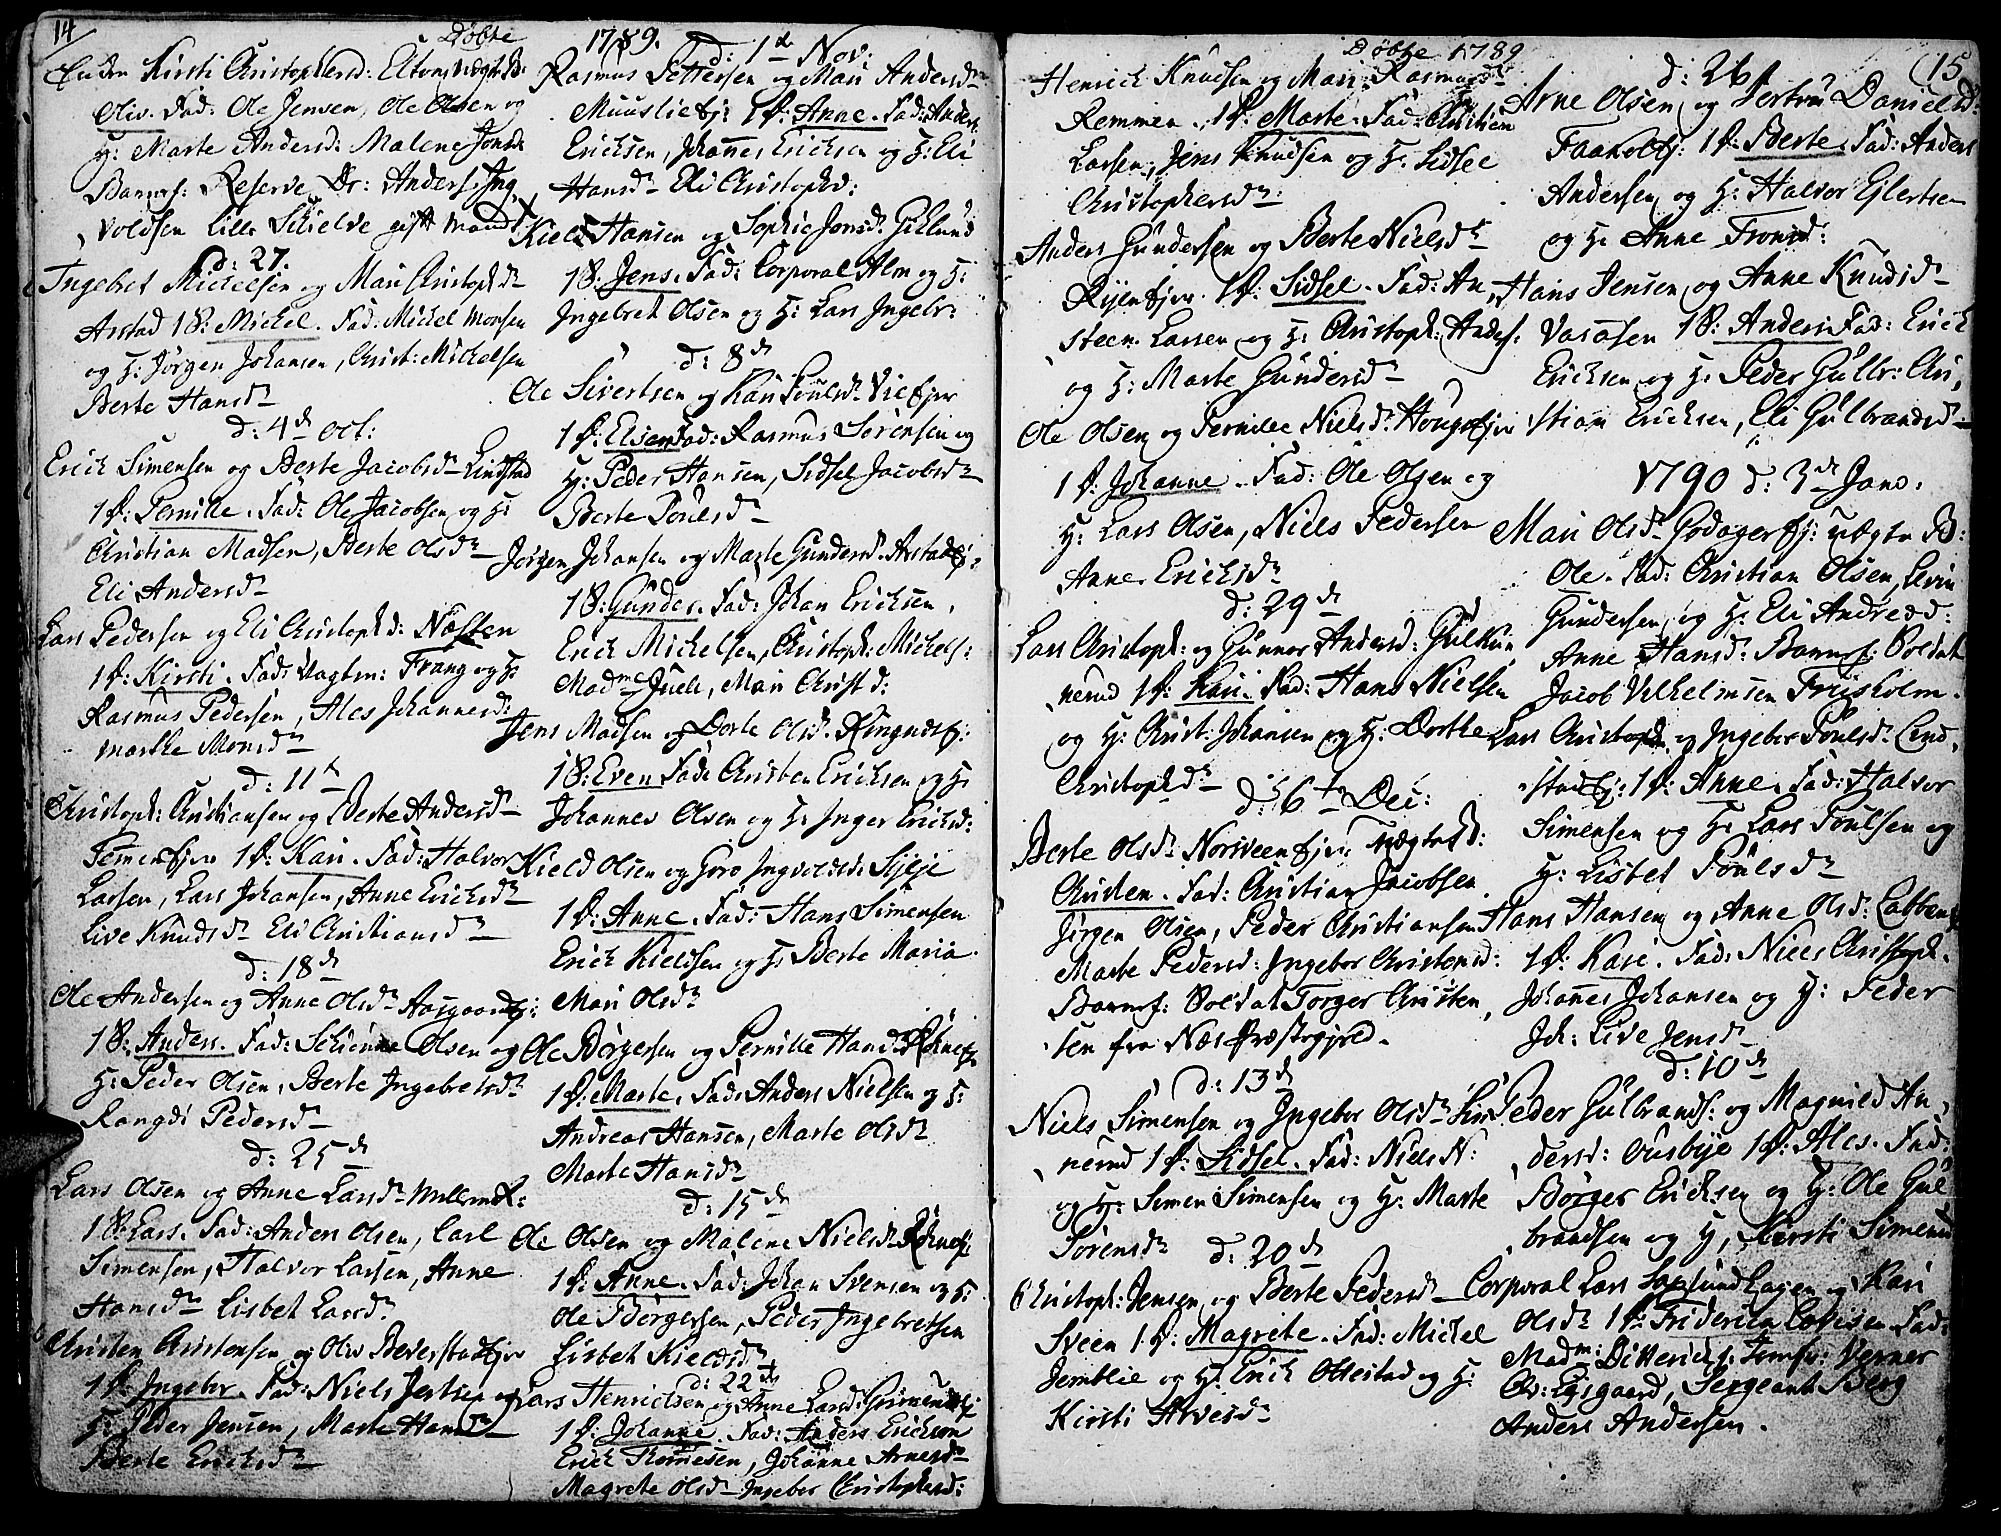 14
Døbte 1789.
Enken Kirsti Christophersd: Eltons uægte B:
Oliv. Fad: Ole Jensen, Ole Olsen og
H: Marte Andersd: Malene Jonsd:
Barnef: Reserve Dr: Anders Ing,
voldsen Lille Schielve gift Mand
d: 27.
Ingebret Michelsen og Mari Christophd:
Arstad 1 B: Michel. Fad. Michel Monsen
og H: Jørgen Johansen, Christ: Michelsen
Berte Hansdr
d: 4de Oct:
Erich Simensen og Berte Jacobsdr Lindstad
1 P: Pernille. Fad: Ole Jacobsen og H:
Christian Madsen, Berte Olsdr
Eli Andersdr
Lars Pedersen og Eli Christophd: Næsten
1 P: Kirsti. Fad: Vagtm: Frang og H:
Rasmus Pedersen, Ales Johannesd:
Marthe Monsdr
d: 11te
Christoph: Christiansen og Berte Andersdr
Femenejer 1 P: Kari. Fad: Halvor
Larsen, Lars Johansen, Anne Erichsdr
Live Knudsdr Eli Christiansdr
d: 18de
Ole Andersen og Anne Olsdr Aasgaardej:
1 B: Anders. Fad: Olsen og
H: Peder Olsen, Berte Ingebretsdr
Rangdi Pedersdr
d: 25de
Lars Olsen og Anne Larsdr
1 B: Lars. Fad: Anders Olsen, Carl
Simensen, Halvor Larsen, Anne
Hansdr Lisbet Larsdr
Christen Christensen og Oliv Beverstadejer
1 P: Ingebor. Fad: Niels Jertsen og
H: Peder Jensen, Marte Hansdr
Berte Erichsdr
d: 1te Nov:
Rasmus Pettersen og Mari Andersdr
Muuslieej: 1 P: Anne. Fad: Anders
Ericksen, Johannes Ericksen og H: Eli
Hansdr Eli Christophd:
Kield Hansen og Sophie Jonsdr Gieklund
1 B: Jens. Fad: Corporal Alm og H:
Ingebret Olsen og H: Lars Ingebr:
d: 8de
Ole Sivertsen og Kari Poulsdr Vieejer
1 P: Elsen Fad: Rasmus Sørensen og
H: Peder Hansen, Sidsel Jacobsdr
Berte Poulsdr
Jørgen Johansen og Marte Gundersdr Arstadej:
1 B: Gunder. Fad: Johan Ericksen,
Erich Michelsen, Christoph: Michels:
Madme Juell, Mari Christd:
Jens Madsen og Dorte Olsdr Ringnesej:
1 B: Even Fad: Christen Ericksen og H:
Johannes Olsen og H: Inger Ericksd:
Kield Olsen og Goro Ingvoldsd: Skjeje
1 P: Anne. Fad: Hans Simensen
Erich Kieldsen og H: Berte Maria
Mari Olsdr
Ole Børgersen og Pernille Hansdr
1 P: Marte. Fad: Anders Nielsen og H:
Andreas Hansen, Marte Olsdr
Marte Hansdr
d: 15de
Ole Olsen og Malene Nielsdr
1 P: Anne. Fad: Johan Svensen og H:
Ole Børgersen, Peder Ingebretsen
Lisbeth Kieldsdr
d: 22de
Lars Henrichsen og Anne Larsd:
1 P: Johanne. Fad: Anders Erickson
Erich Thomesen, Johanne Arnesdr
Magrete Olsdr Ingebor Christophersd:
Døbte 1789
15
Henrich Knudsen og Mari Rasmusdr
Remmen. 1 P: Marte. Fad: Christien
Larsen, Jens Knudsen og H: Sidsel
Christophersdr:
Anders Gundersen og Berte Nielsdr
Ryenejer. 1 P: Sidsel. Fad: An,
steen Larsen og H: Christoph: Anders:
og H: Marte Gundersdr
Ole Olsen og Pernille Nielsdr Hougsejer
1 P: Johanne. Fad: Ole Olsen og
H: Lars Olsen, Niels Pedersen
Anne Ericksdr
d: 29de
Lars Christoph: og Gunnor Andersd: Gulkun,
nerud 1 P: Kari. Fad: Hans Nielsen
og H: Christ: Johansen og H: Dorthe
Christophdr
d: 6te Dec:
Berte Olsdr Norsveenejer uægte B:
Christen. Fad: Christian Jacobsen
Jørgen Olsen, Peder Christiansen
Marte Pedersd: Ingebor Christensd:
Barnef: Soldat Torger Christen,
sen fra Næs Præstegjeld.
d: 13de
Niels Simensen og Ingebor Olsdr
nerud 1 P: Sidsel. Fad: Niels N:
og H: Simen Simensen og H: Marte
Sørensdr
d: 20de
Christoph: Jensen og Berte Pedersdr
Sveen 1 P: Magrete. Fad: Michel
Jemblie og H: Erich Olsestad og H:
Kirsti Arvesdr
d: 26de
Arne Olsen og Jertru Danielsd:
Faaholtej: 1 P: Berte. Fad: Anders
Andersen og H: Halvor Ejlertsen
og H: Anne Fronsd:
Hans Jensen og Anne Knudsdr
Vasaasen 1 B: Anders. Fad: Erich
Ericksen og H: Peder Gullbr: Chri,
stian Ericksen, Eli Gulbrandsdr
1790 d: 3de Janv.
Mari Olsdr Godagerej: uægte B:
Ole. Fad: Christian Olsen, Svin
Gundersen, og H: Eli Andreasd:
Anne Hansd: Barnef: Soldat
Jacob Vilhelmsen Friisholm.
Lars Christoph. og Ingebor Poulsdr Lund,
stadej: 1 P: Anne. Fad: Halvor
Simensen og H: Lars Poulsen og
H: Lisbet Poulsdr
Hans Hansen og Anne Olsd: Labbenej
1 P: Kari. Fad: Niels Christoph.
Johannes Johansen og H: Peder
Joh: Live Jensdr
d: 10de
Peder Gulbrands: og Magnild An,
dersd: Ousbye 1 P: Ales. Fad:
Børger Ericksen og H: Ole Gul
brandsen og H, Kirsti Simensd
Corporal Lars Sophund Hagen og Kari
Olsdr 1 P: Friderica Lovisen Fad:
Madm: Ditterichs: Jomfr: Verner
Ov: Lysgaard, Sergeant Berg
Anders Andersen.